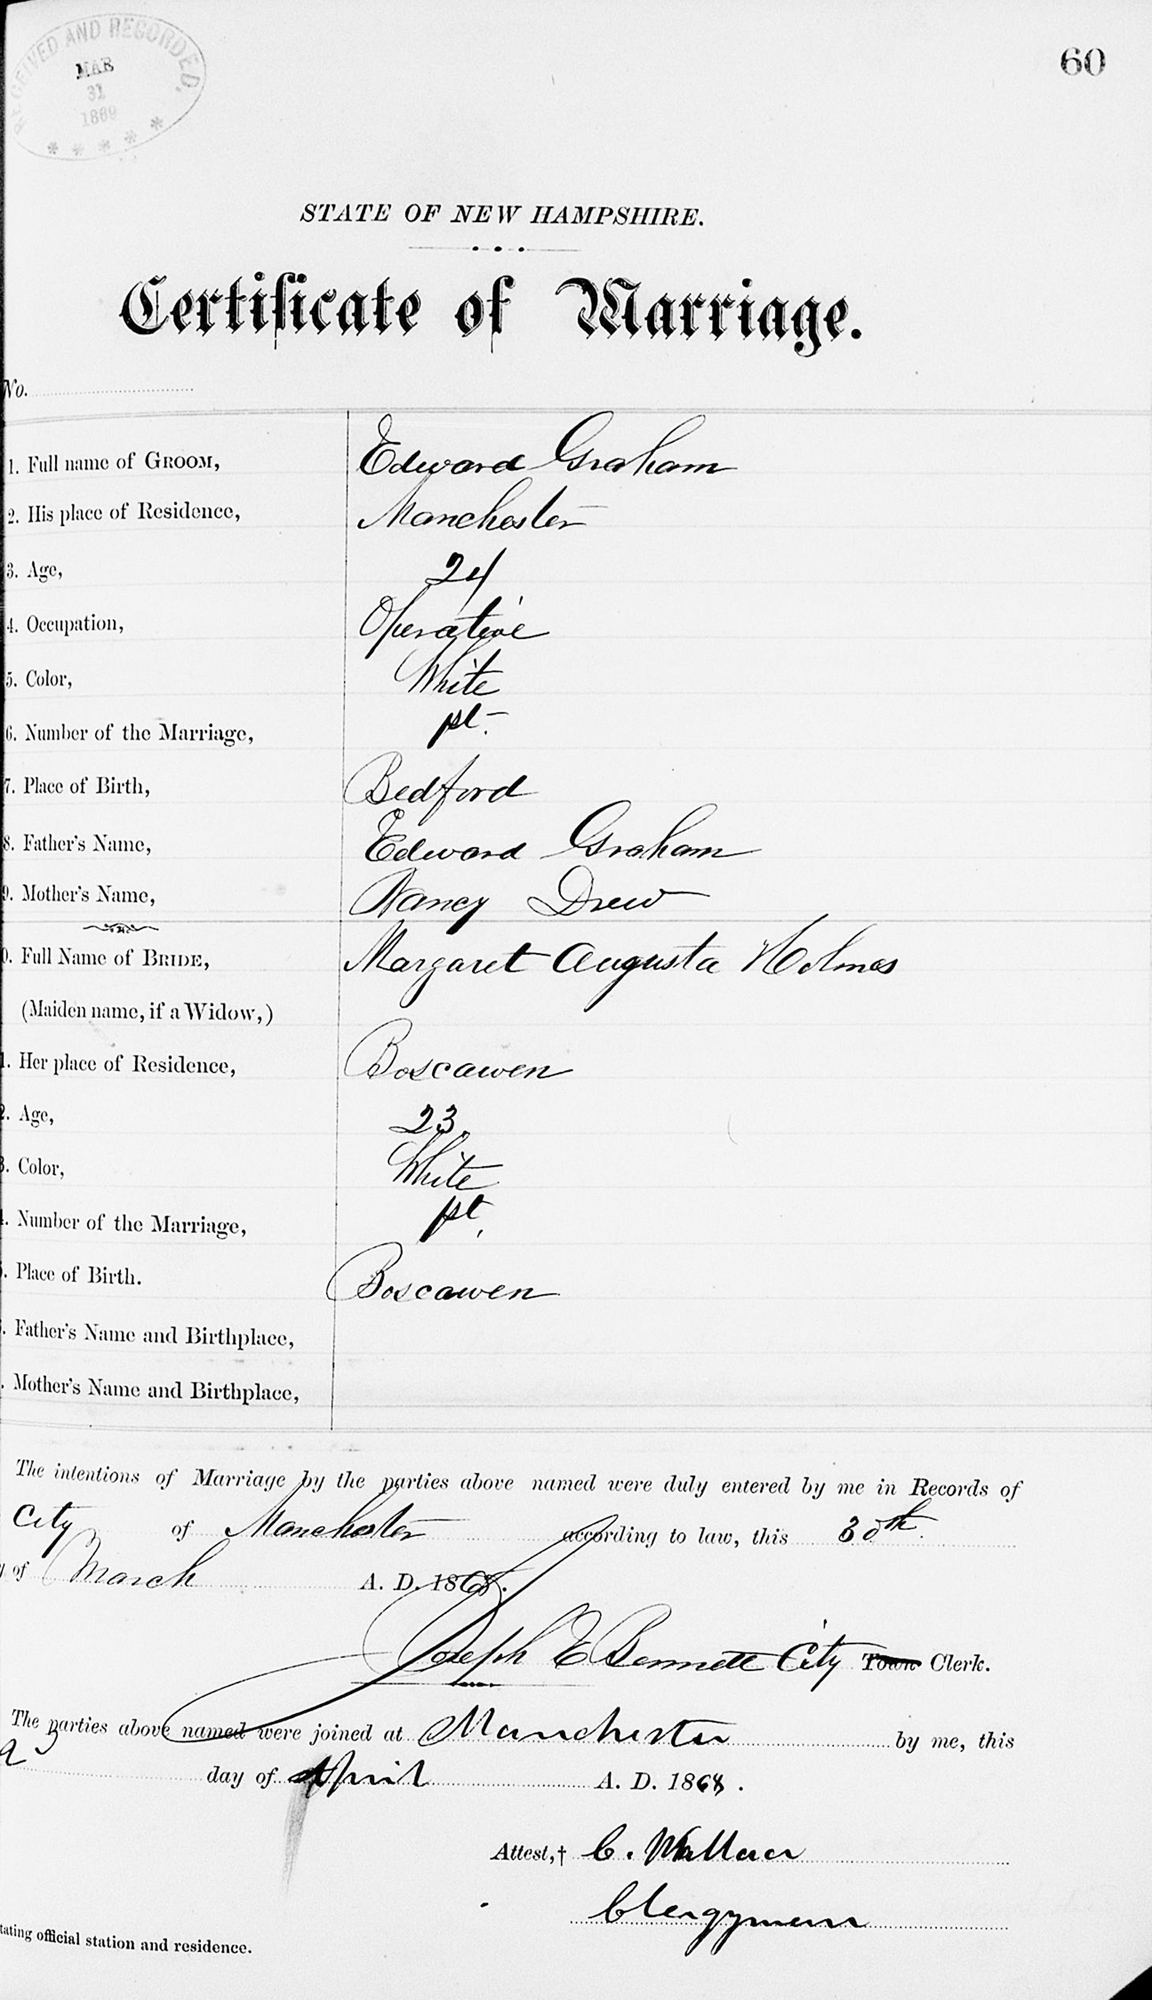 RECEIVED AND RECORDED,
MAR
31
1869
60
STATE OF NEW HAMPSHIRE.
Certificate of Marriage.
No.
1. Full name of GROOM, Edward Graham
2. His place of Residence, Manchester
3. Age, 24
4. Occupation, Operative
5. Color, White
6. Number of the Marriage, 1st
7. Place of Birth, Bedford
8. Father's Name, Edward Graham
9. Mother's Name, Nancy Drew
0. Full Name of BRIDE, Margaret Augusta Holmes
(Maiden name, if a Widow,)
1. Her place of Residence, Boscawen
2. Age, 23
3. Color, White
4. Number of the Marriage, 1st
. Place of Birth. Boscawen
. Father's Name and Birthplace,
. Mother's Name and Birthplace,
The intentions of Marriage by the parties above named were duly entered by me in Records of
City of Manchester according to law, this 30th
of March A. D. 1868.
Joseph E Bennett City Town Clerk.
The parties above named were joined at Manchester by me, this
day of April A. D. 1868.
Attest,† C. Wallace
Clergyman
tating official station and residence.